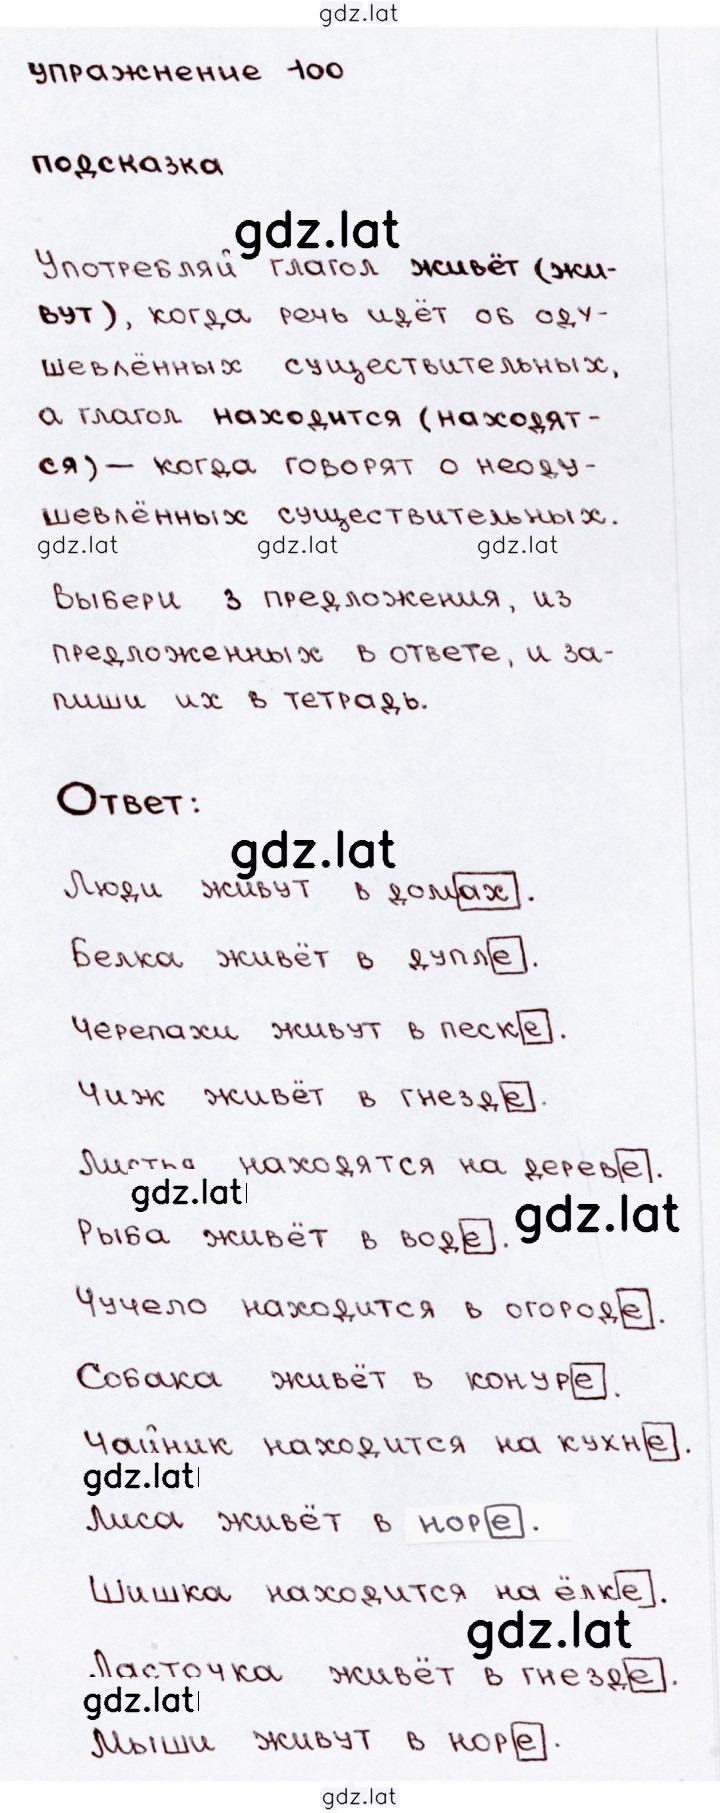 gdz.lat
упражнение 100
подсказка
gdz.lat
Употребляй глагол живёт (жи-
вут), когда речь идёт об оду-
шевлённых существительных,
а глагол находится (находят-
ся) — когда говорят о неоду-
шевлённых существительных.
gdz.lat gdz.lat gdz.lat
Выбери 3 предложения, из
предложенных в ответе, и за-
пиши их в тетрадь.
Ответ:
gdz.lat
Люди живут в домах.
Белка живёт в дупле.
Черепахи живут в песке.
Чиж живёт в гнезде.
Листья находятся на дереве.
gdz.lat
gdz.lat
Рыба живёт в воде.
Чучело находится в огороде.
Собака живёт в конуре.
Чайник находится на кухне.
gdz.lat
Лиса живёт в норе.
Шишка находится на ёлке.
gdz.lat
Ласточка живёт в гнезде.
gdz.lat
Мыши живут в норе.
gdz.lat